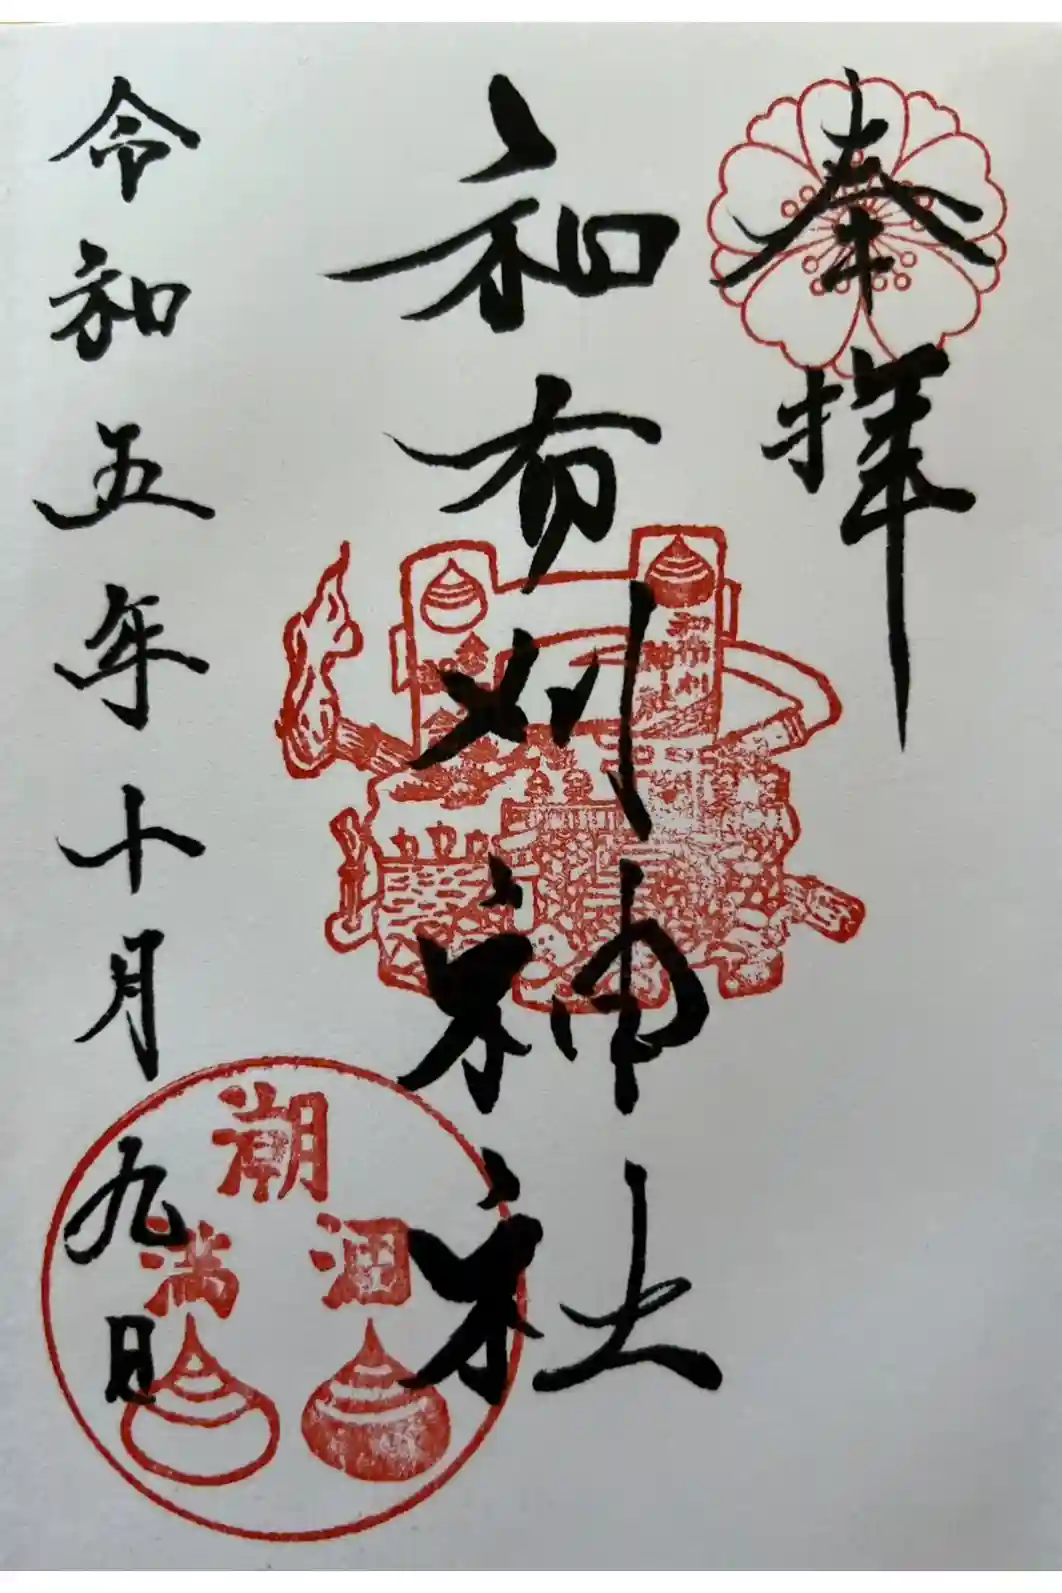 奉拝
和布刈神社
令和五年十月九日
和布刈
神社
潮
満 涸